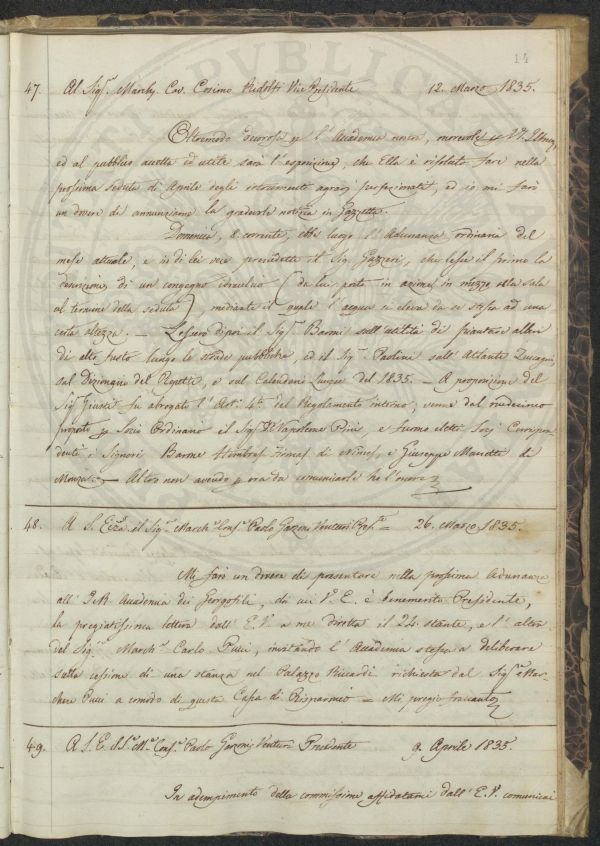 14
47. Al Sigr. March. Cav. Cosimo Ridolfi Vice Presidente 12. Marzo 1835.
Oltremodo per l'Accademia nostra, per V. S. Illma,
ed al pubblico accetta ed utile sarà l'esposizione, che Ella è risoluto fare nella
prossima seduta di Aprile degli istrumenti agrarj perfezionati, ed io mi farò
un dovere di annunziarne la gradevole notizia in Gazzetta.
Domenica, 8. corrente, ebbe luogo l'Adunanza ordinaria del
mese attuale, e in di lei vece presedette il Sig. Gazzeri, che lesse il primo la
descrizione di un congegno idraulico (da lui posto in azione in mezzo alla sala
al termine della seduta), mediante il quale l'acqua si eleva da se stessa ad una
certa altezza. — Lessero dipoi il Sigr. sull'utilità di piantare alberi
di alto fusto lungo le strade pubbliche, ed il Sigr. Paolini sull'Atlante
sul Dizionario del Repetti, e sul Calendario del 1835. — A proposizione del
Sigr. Giusti fu abrogato l'Art. 4to. del Regolamento interno, venne dal medesimo
proposto per Socio Ordinario il Sigr. Napoleone Pini, e furono eletti Socj Corrispon
denti i Signori Barone di Nimes, e Giuseppe di
Monza. — Altro non avendo per ora da comunicarle ho l'onore
48. A S. Ecza. il Sigr. March. Consr. Paolo Garzoni Venturi Preste = 26. Marzo 1835.
Mi farò un dovere di presentare nella prossima Adunanza
all'I. e R. Accademia dei Georgofili, di cui V. E. è benemerito Presidente,
la pregiatissima lettera dell'E. V. a me diretta il 24. stante, e l'altra
del Sigr. March. Carlo Pucci, invitando l'Accademia stessa a deliberare
sulla cessione di una stanza nel Palazzo Riccardi richiesta dal Sigr. Mar-
chese Pucci a comodo di questa Cassa di Risparmio — Mi pregio frattanto
49. A S. E. il Sr. Mse. Consr. Paolo Garzoni Venturi Presidente 9. Aprile 1835.
In adempimento della commissione affidatami dall'E. V. comunicai